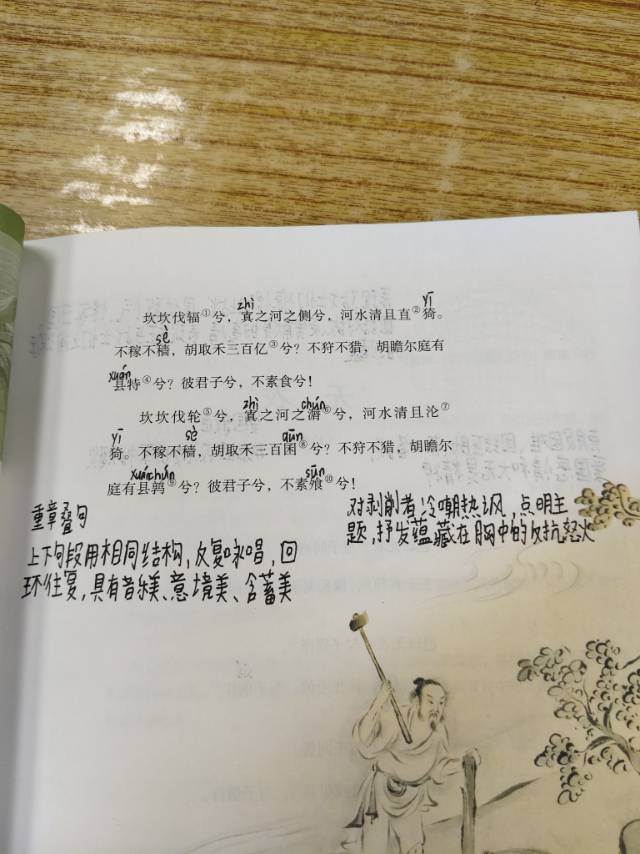 zhì yī
坎坎伐辐①兮，寘之河之侧兮，河水清且直②猗。
sè
不稼不穑，胡取禾三百亿③兮？不狩不猎，胡瞻尔庭有
xuán
县特④兮？彼君子兮，不素食兮！
zhì chún
坎坎伐轮⑤兮，寘之河之漘⑥兮，河水清且沦⑦
yī sè qūn
猗。不稼不穑，胡取禾三百囷⑧兮？不狩不猎，胡瞻尔
xuán chún sūn
庭有县鹑⑨兮？彼君子兮，不素飧⑩兮！
重章叠句
上下句段用相同结构，反复咏唱，回
环往复，具有音乐美、意境美、含蓄美
对剥削者冷嘲热讽，点明主
题，抒发蕴藏在胸中的反抗怒火